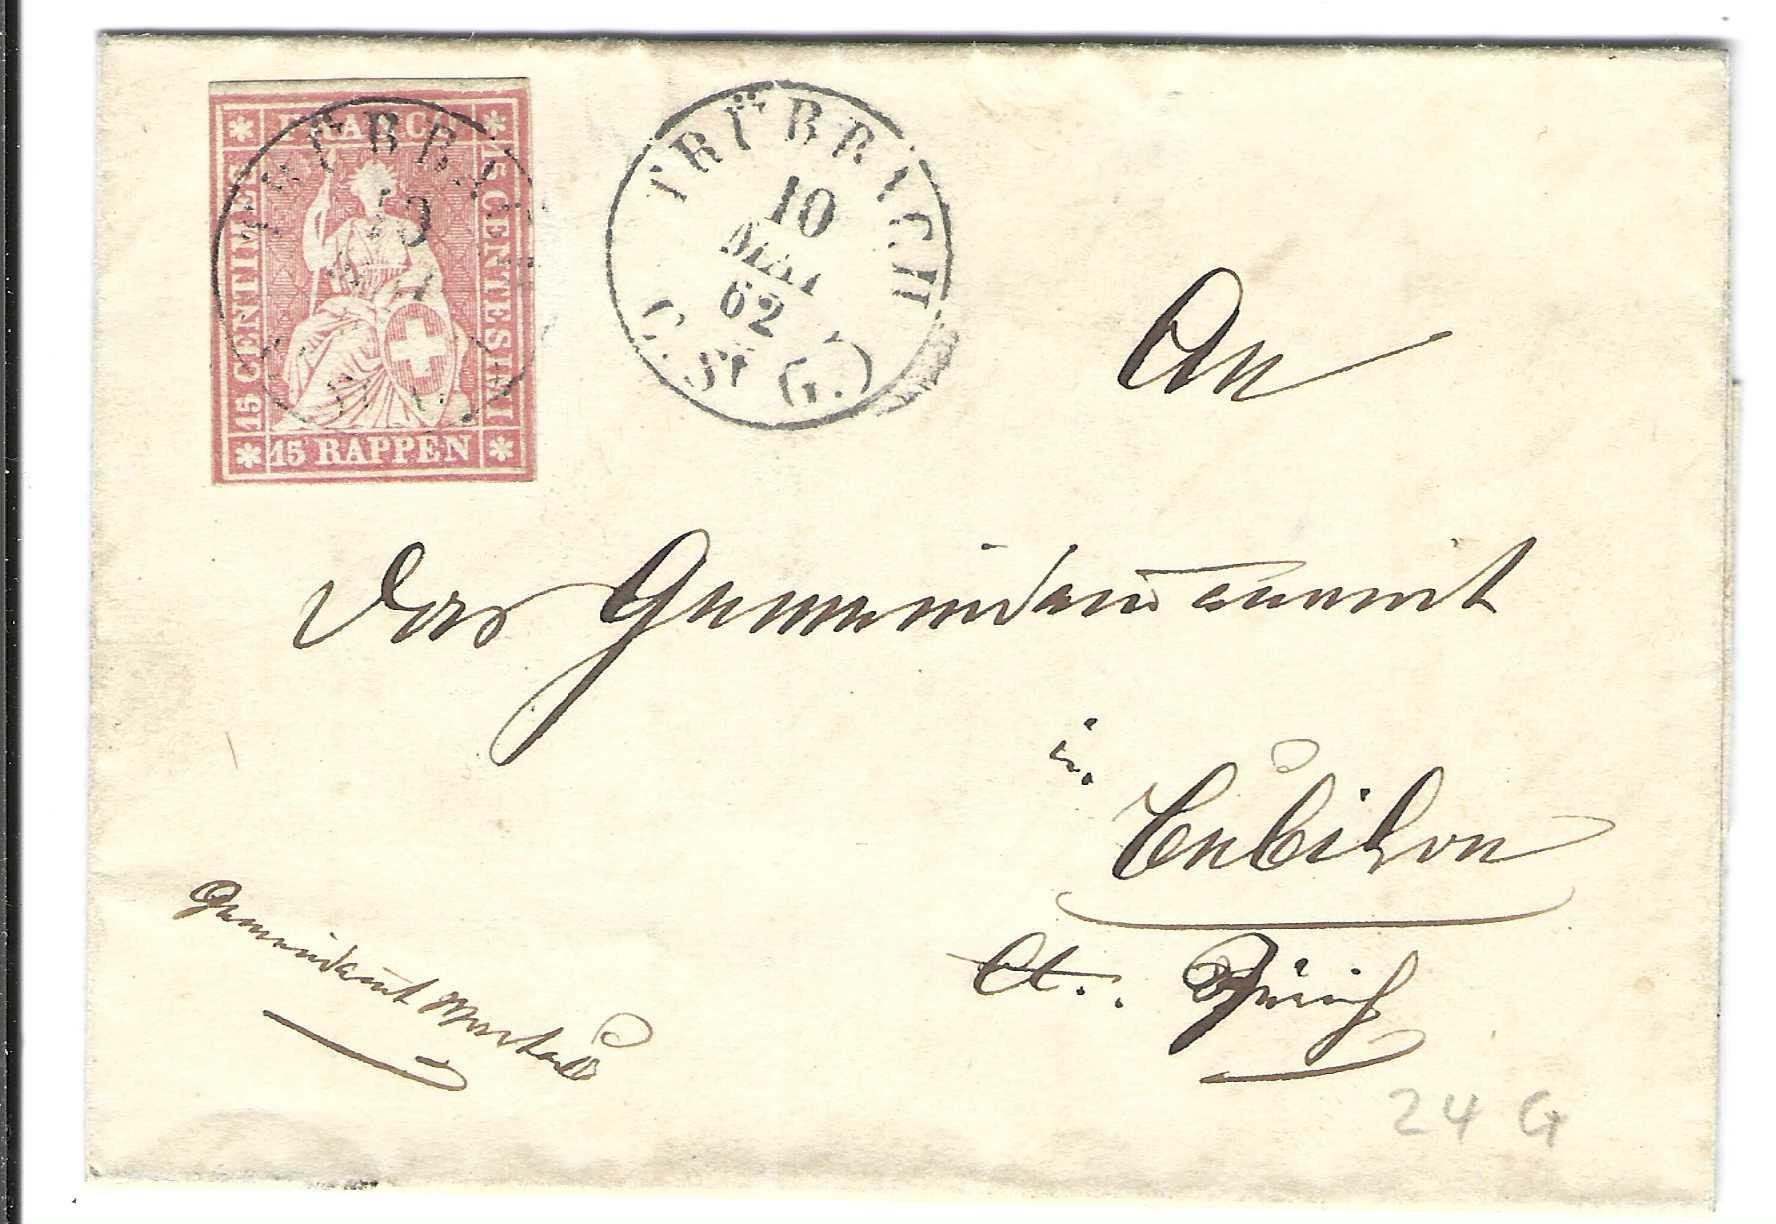 FRANCO
15 CENTIMES
15 CENTESIMI
15 RAPPEN
TRÜBBACH
10
MAI
62
(C. St. G.)
An
das Gemeindammannamt
in
Bubikon
Ct. Zürich
Gemeindamt Wartau
24 G